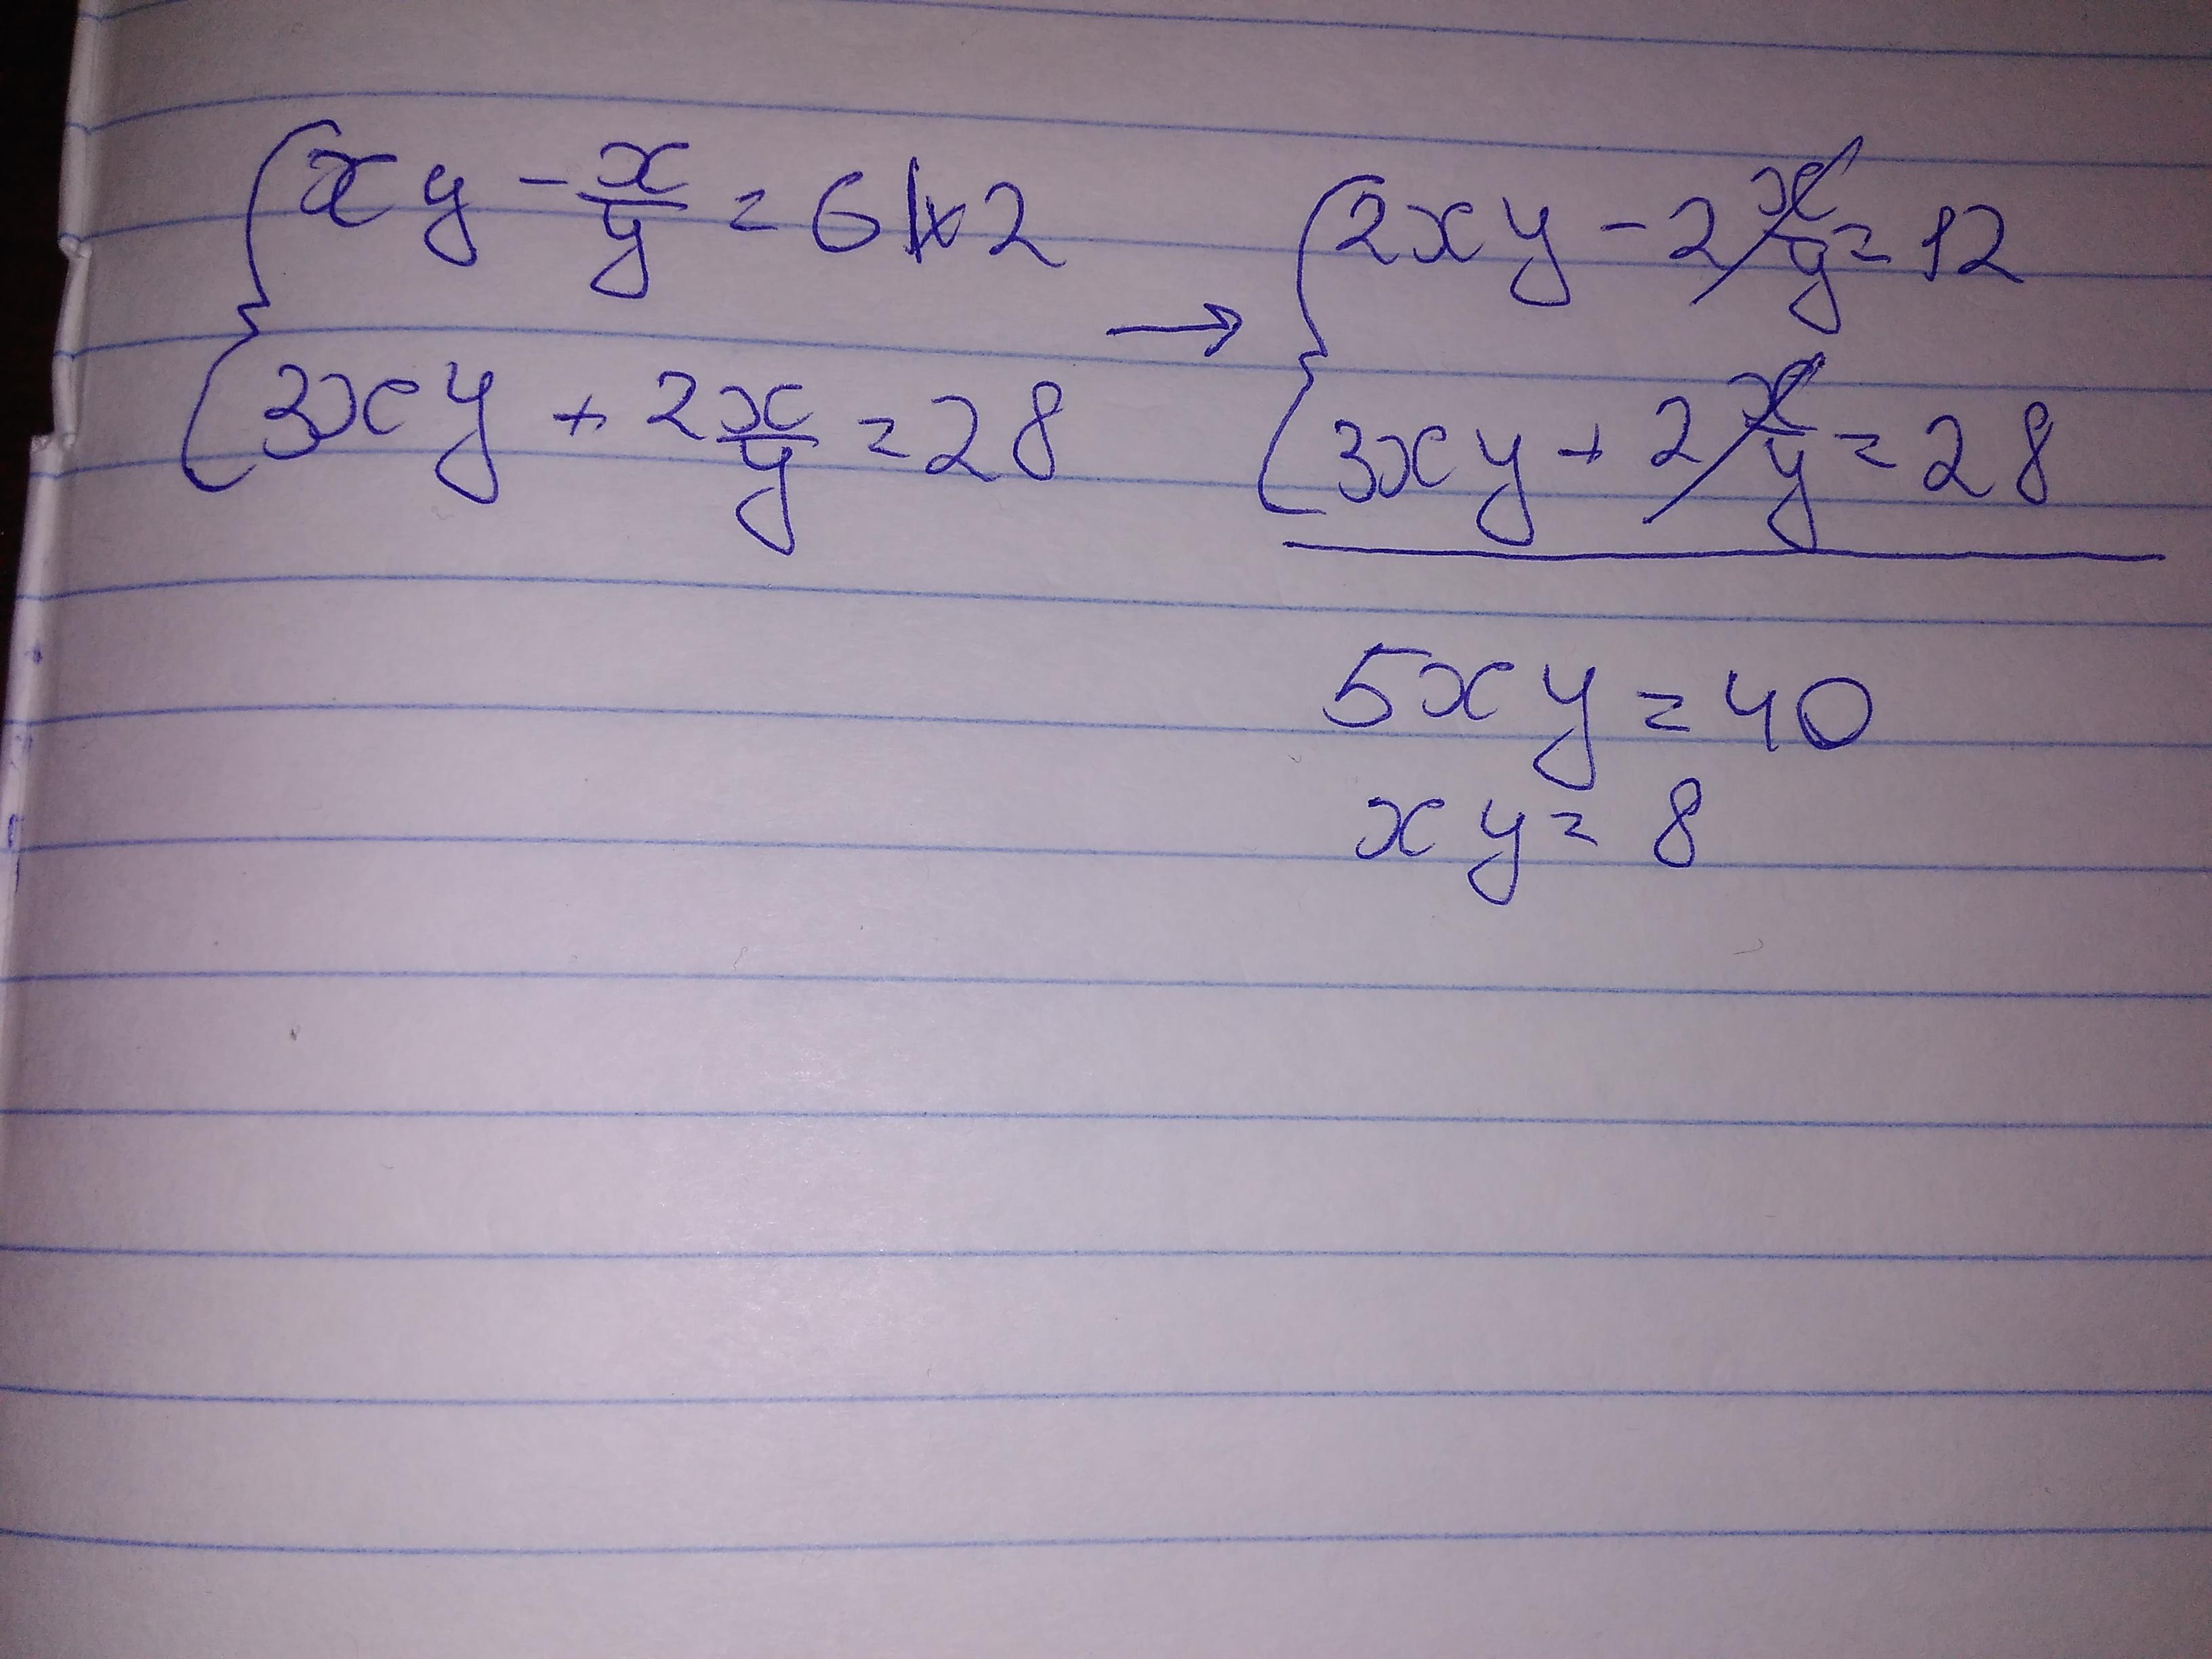 xy - x/y = 6 |×2
3xy + 2x/y = 28
→
2xy - 2x/y = 12
3xy + 2x/y = 28
5xy = 40
xy = 8